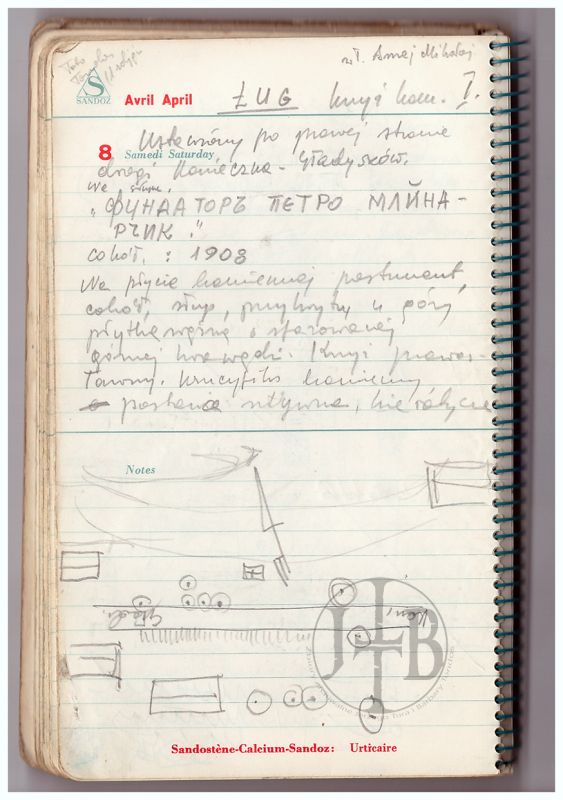 SANDOZ
Avril April
ŁUG krzyż kam. I.
wł. Mikołaj
8
Samedi Saturday
Ustawiony po prawej stronie
drogi Konieczna - Gładyszów.
we
"ФУНДАТОРЪ ПЕТРО МЛЙНА-
РЧИК."
cokoł. : 1908
Na płycie kamiennej postument,
cokół, słup, przykryty u góry
płytką o sfazowanej
górnej krawędzi. Krzyż prawos-
ławny. Krucyfiks kamienny
postawa sztywna, nie
Notes
JLTB
Sandostène-Calcium-Sandoz: Urticaire